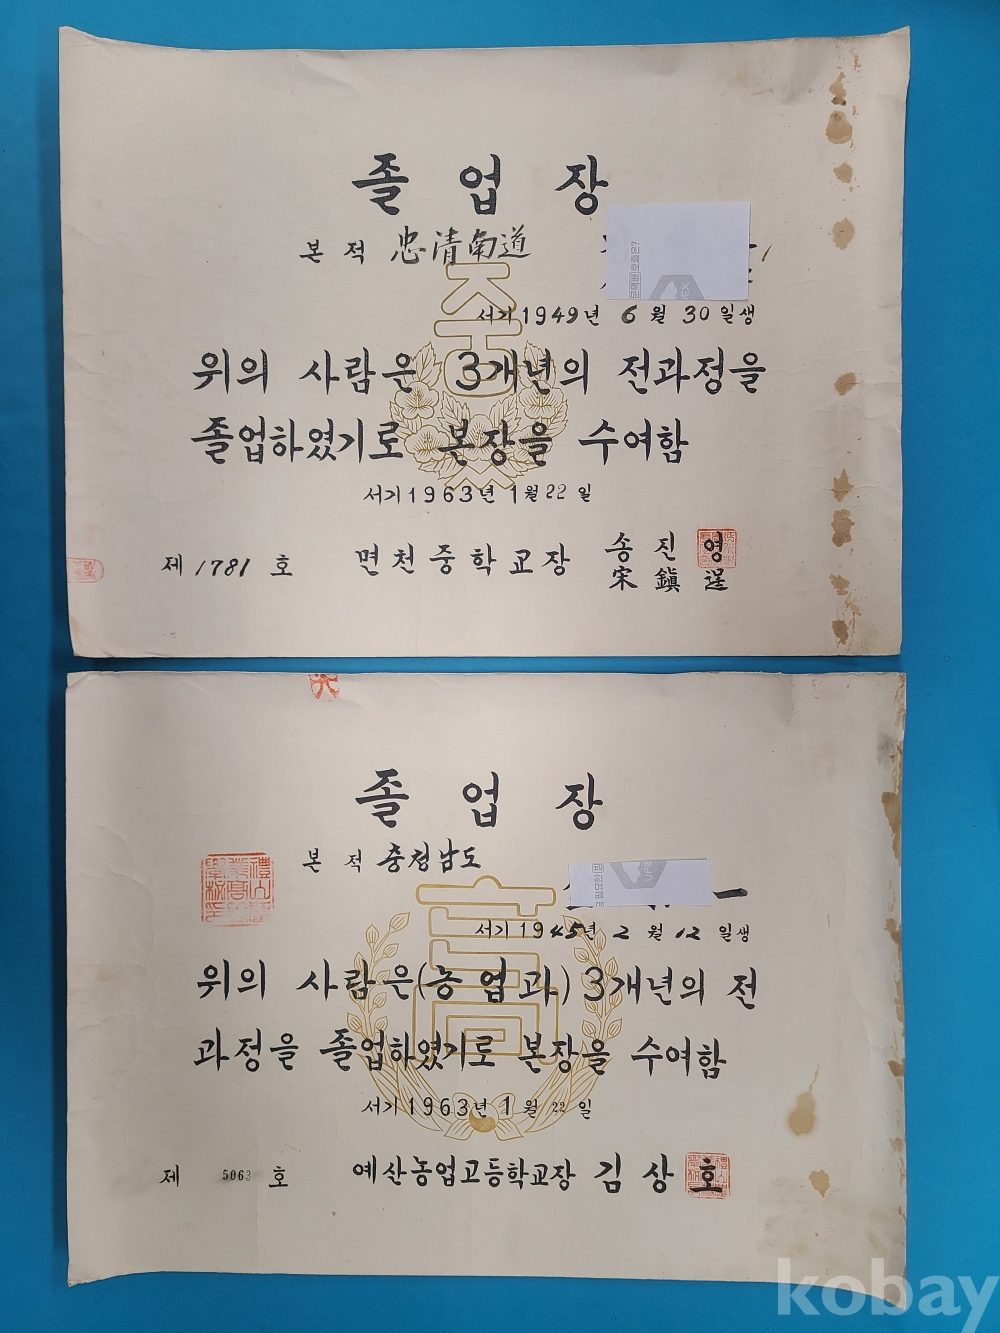 졸 업 장
본 적 忠清南道
서기 1949년 6월 30일생
위의 사람은 3개년의 전과정을
졸업하였기로 본장을 수여함
서기 1963년 1월 22일
제 1781 호 면천중학교장 송진영
宋鎭
졸 업 장
본 적 충청남도
서기 1945년 2월 12일생
위의 사람은(농업과) 3개년의 전
과정을 졸업하였기로 본장을 수여함
서기 1963년 1월 22일
제 5063 호 예산농업고등학교장 김상호
kobay